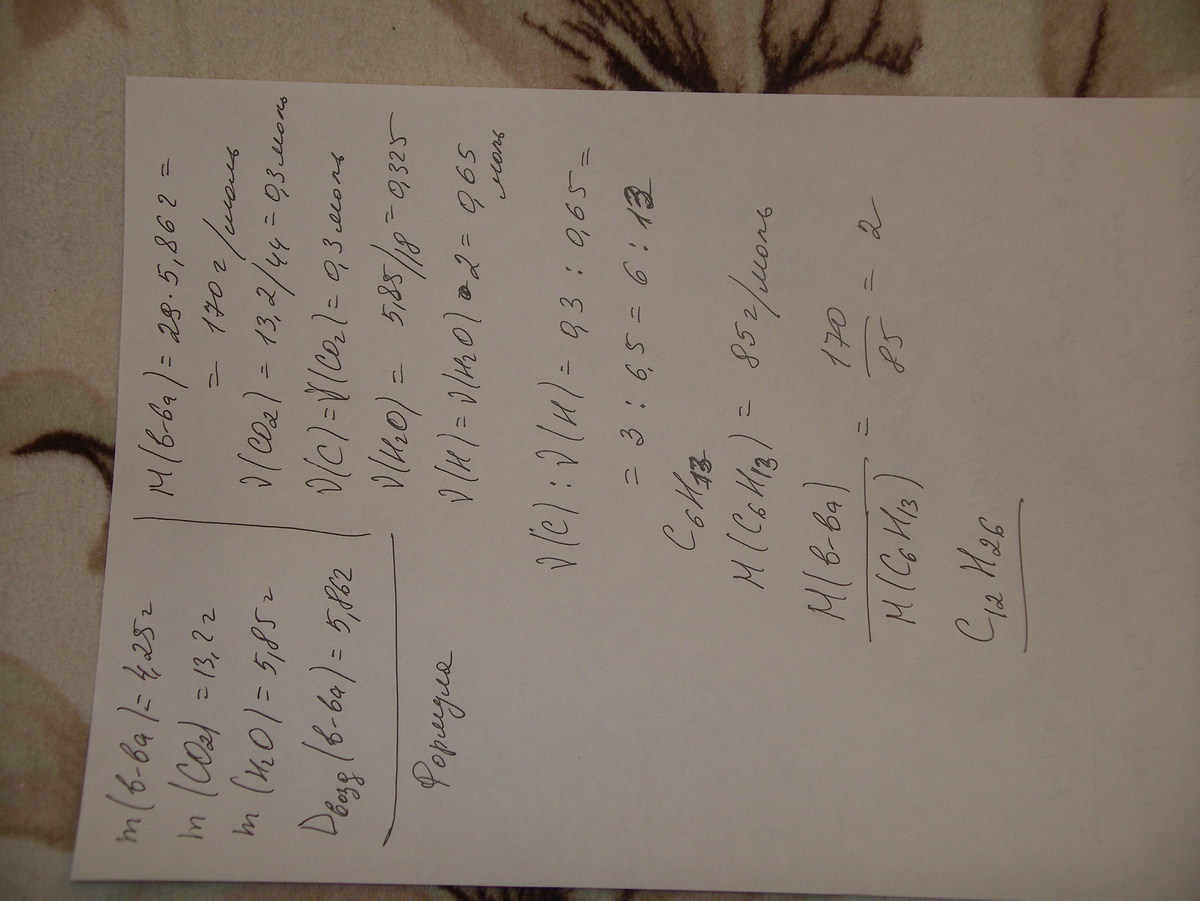 m(в-ва) = 4,25г
m(CO2) = 13,2г
m(H2O) = 5,85г
Dвозд(в-ва) = 5,862
Формула
M(в-ва) = 29·5,862 =
= 170г/моль
ν(CO2) = 13,2/44 = 0,3моль
ν(C) = ν(CO2) = 0,3моль
ν(H2O) = 5,85/18 = 0,325
ν(H) = ν(H2O)·2 = 0,65
моль
ν(C) : ν(H) = 0,3 : 0,65 =
= 3 : 6,5 = 6 : 13
C6H13
M(C6H13) = 85г/моль
M(в-ва)/M(C6H13) = 170/85 = 2
C12H26